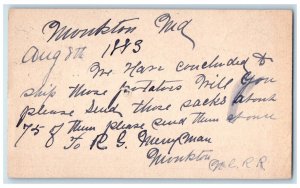 Monkton Md
Aug 8th 1883
We Have concluded to
ship those potatoes Will you
please send those sacks about
75 of them please send them at once
To R G Merryman
Monkton
R.R.